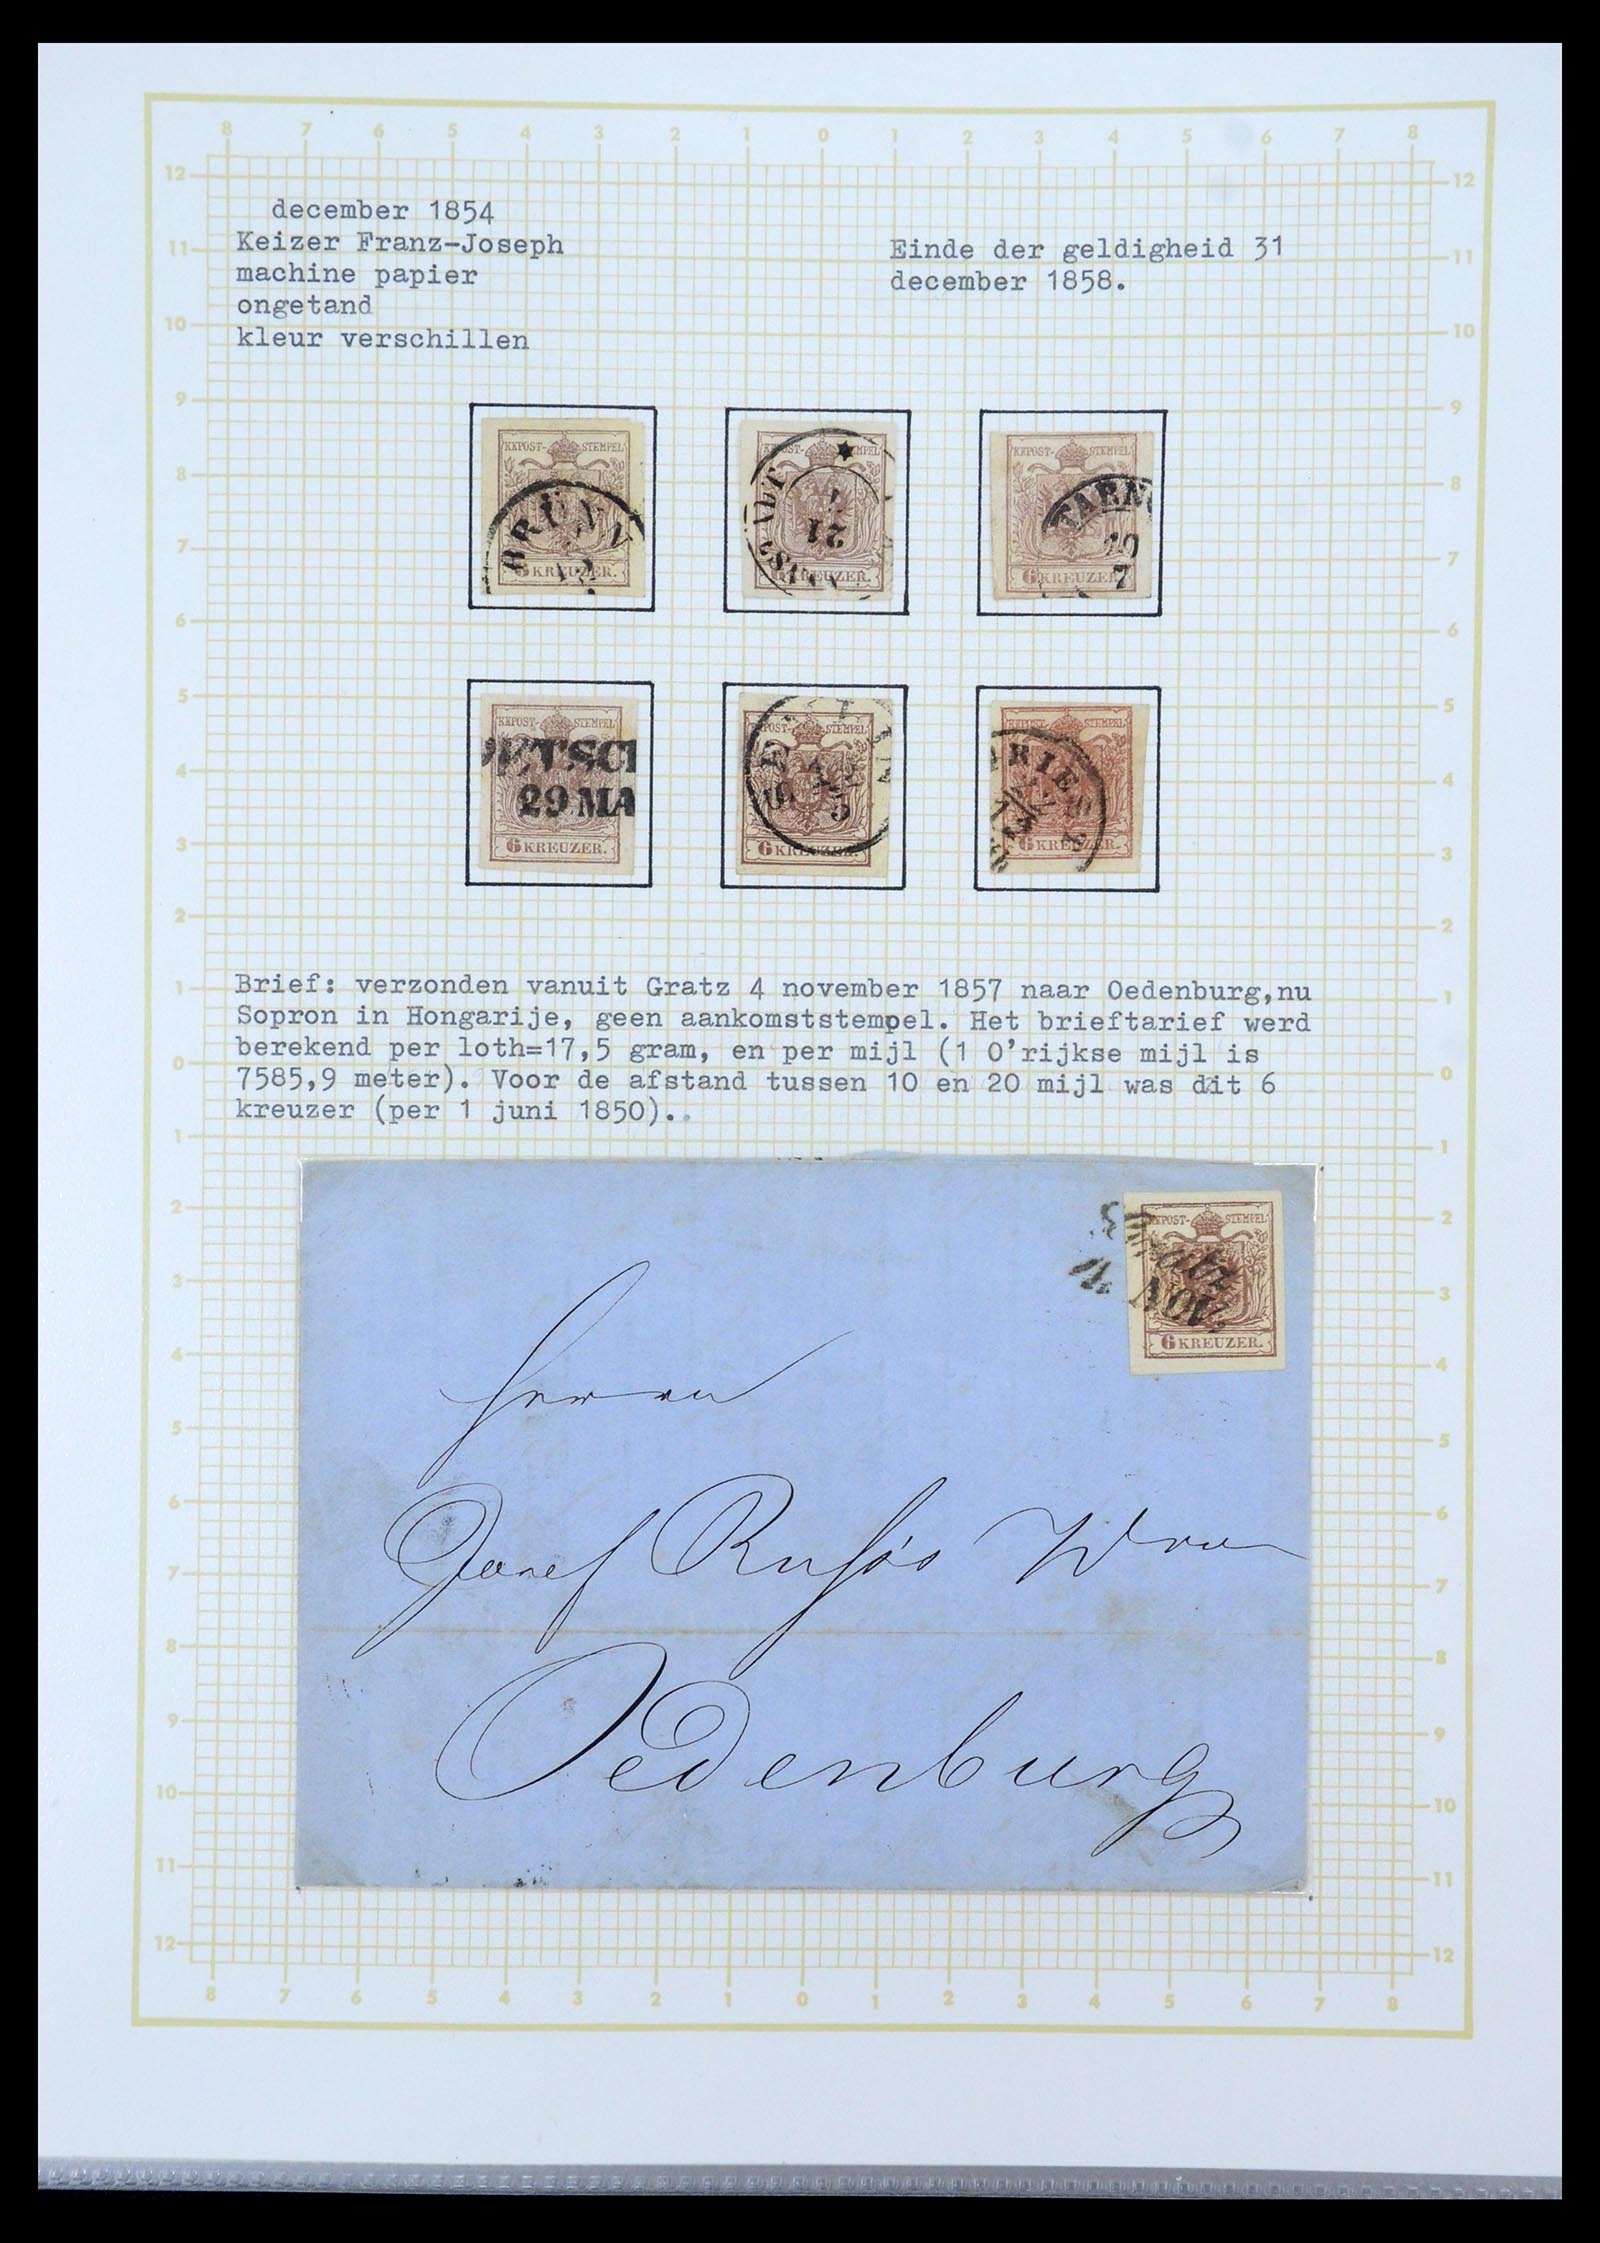 december 1854
Keizer Franz-Joseph
machine papier
ongetand
kleur verschillen
Einde der geldigheid 31
december 1858.
KKPOST- STEMPEL
BRÜNN
6 KREUZER.
KKPOST- STEMPEL
21
7
KREUZER.
KKPOST- STEMPEL
TARN
10
7
6 KREUZER
KKPOST- STEMPEL
PETSCH
29 MA
6 KREUZER.
KKPOST- STEMPEL
5
6 KREUZER.
KKPOST- STEMPEL
TRIEST
6 KREUZER.
Brief: verzonden vanuit Gratz 4 november 1857 naar Oedenburg,nu
Sopron in Hongarije, geen aankomststempel. Het brieftarief werd
berekend per loth=17,5 gram, en per mijl (1 O'rijkse mijl is
7585,9 meter). Voor de afstand tussen 10 en 20 mijl was dit 6
kreuzer (per 1 juni 1850)..
KKPOST- STEMPEL
Gratz
4 NOV.
6 KREUZER.
Herrn
Josef
Oedenburg